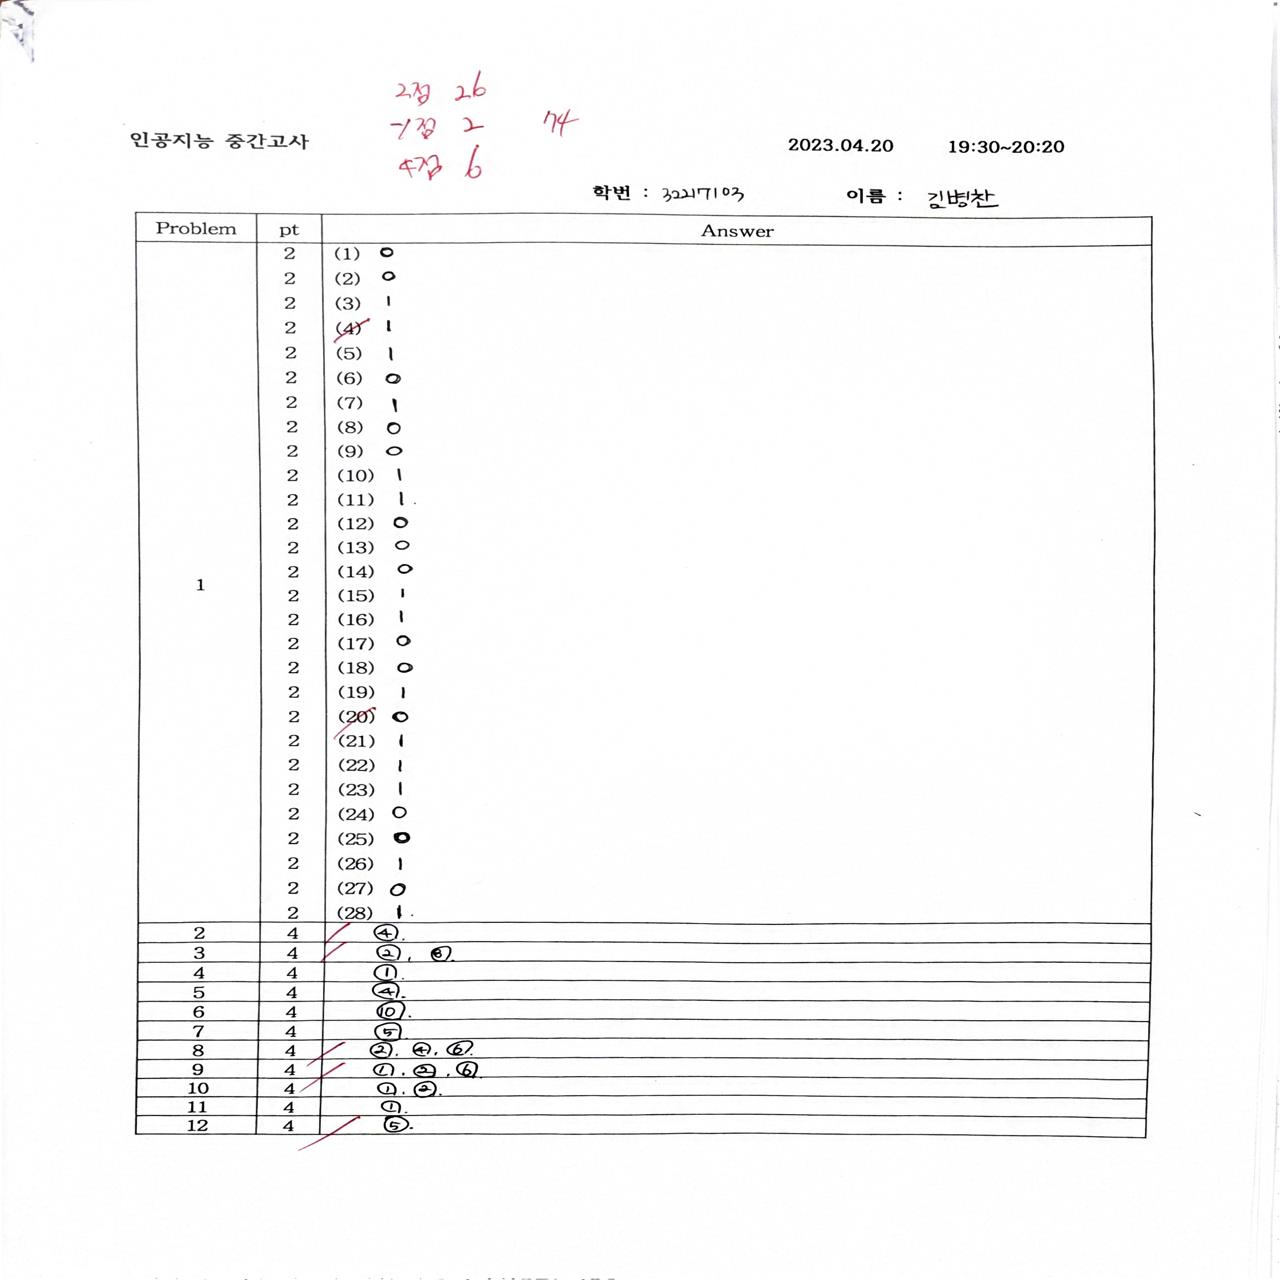 2점 26
-1점 2 74
인공지능 중간고사 2023.04.20 19:30~20:20
4점 6
학번 : 32217103 이름 : 김병찬
Problem pt Answer
2 (1) 0
2 (2) 0
2 (3) 1
2 (4) 1
2 (5) 1
2 (6) 0
2 (7) 1
2 (8) 0
2 (9) 0
2 (10) 1
2 (11) 1.
2 (12) 0
2 (13) 0
2 (14) 0
1
2 (15) 1
2 (16) 1
2 (17) 0
2 (18) 0
2 (19) 1
2 (20) 0
2 (21) 1
2 (22) 1
2 (23) 1
2 (24) 0
2 (25) 0
2 (26) 1
2 (27) 0
2 (28) 1.
2 4 ④.
3 4 ②, ⑥
4 4 ①.
5 4 ④.
6 4 ⑩.
7 4 ⑤
8 4 ②. ④. ⑥.
9 4 ①. ②. ⑥
10 4 ①. ②.
11 4 ①.
12 4 ⑤.